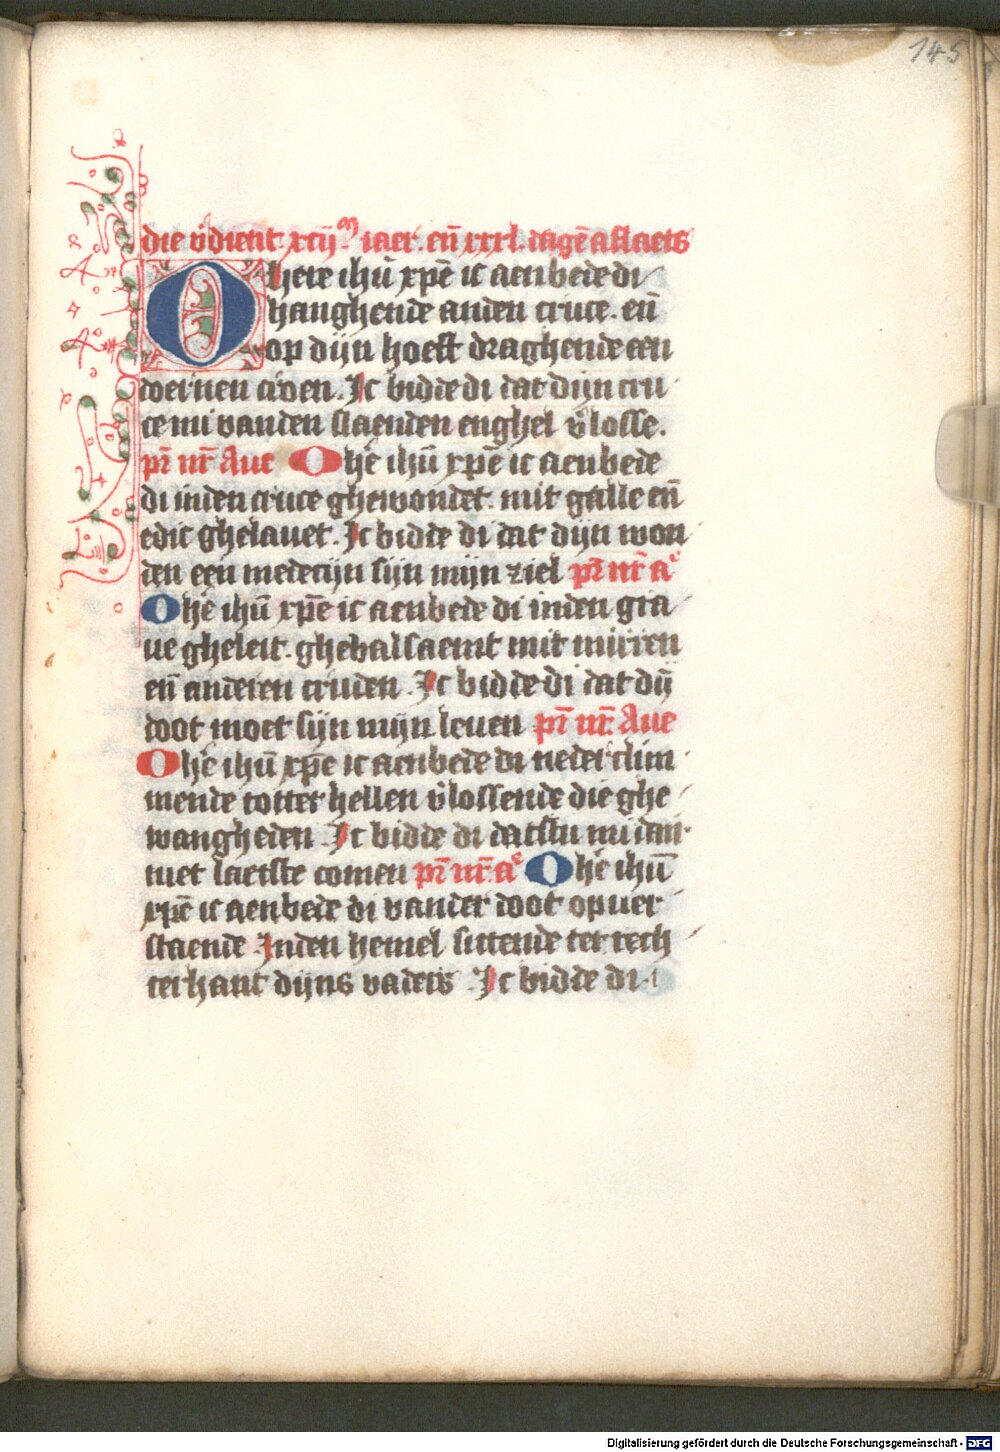 145
die v̄dient xcij^m iaer. eñ xxxl. dagē aflaets
O here ihū xpē ic aenbede di
hanghende anden cruce. eñ
op dijn hoeft draghende een
doernen croen. Ic bidde di dat dijn cru
ce mi vanden slaenden enghel v̄losse.
pr̄ nr̄ Aue O he ihū xpē ic aenbede
di inden cruce ghewondet. mit galle eñ
edic ghelauet. Ic bidde di dat dijn won
den een medecijn sijn mijn ziel pr̄ nr̄ a^e
O he ihū xpē ic aenbede di inden gra
ue gheleit. ghebalsaemt mit mirren
eñ anderen cruden. Ic bidde di dat dij̄
doot moet sijn mijn leuen pr̄ nr̄. Aue
O he ihū xpē ic aenbede di neder clim
mende totter hellen v̄lossende die ghe
wangheden. Ic bidde di datstu mi dair
niet laetste comen pr̄ nr̄. a^e O he ihū
xpē ic aenbede di vander doot opuer
staende Inden hemel sittende ter rech
ter hant dijns vaders Ic bidde di
Digitalisierung gefördert durch die Deutsche Forschungsgemeinschaft - DFG